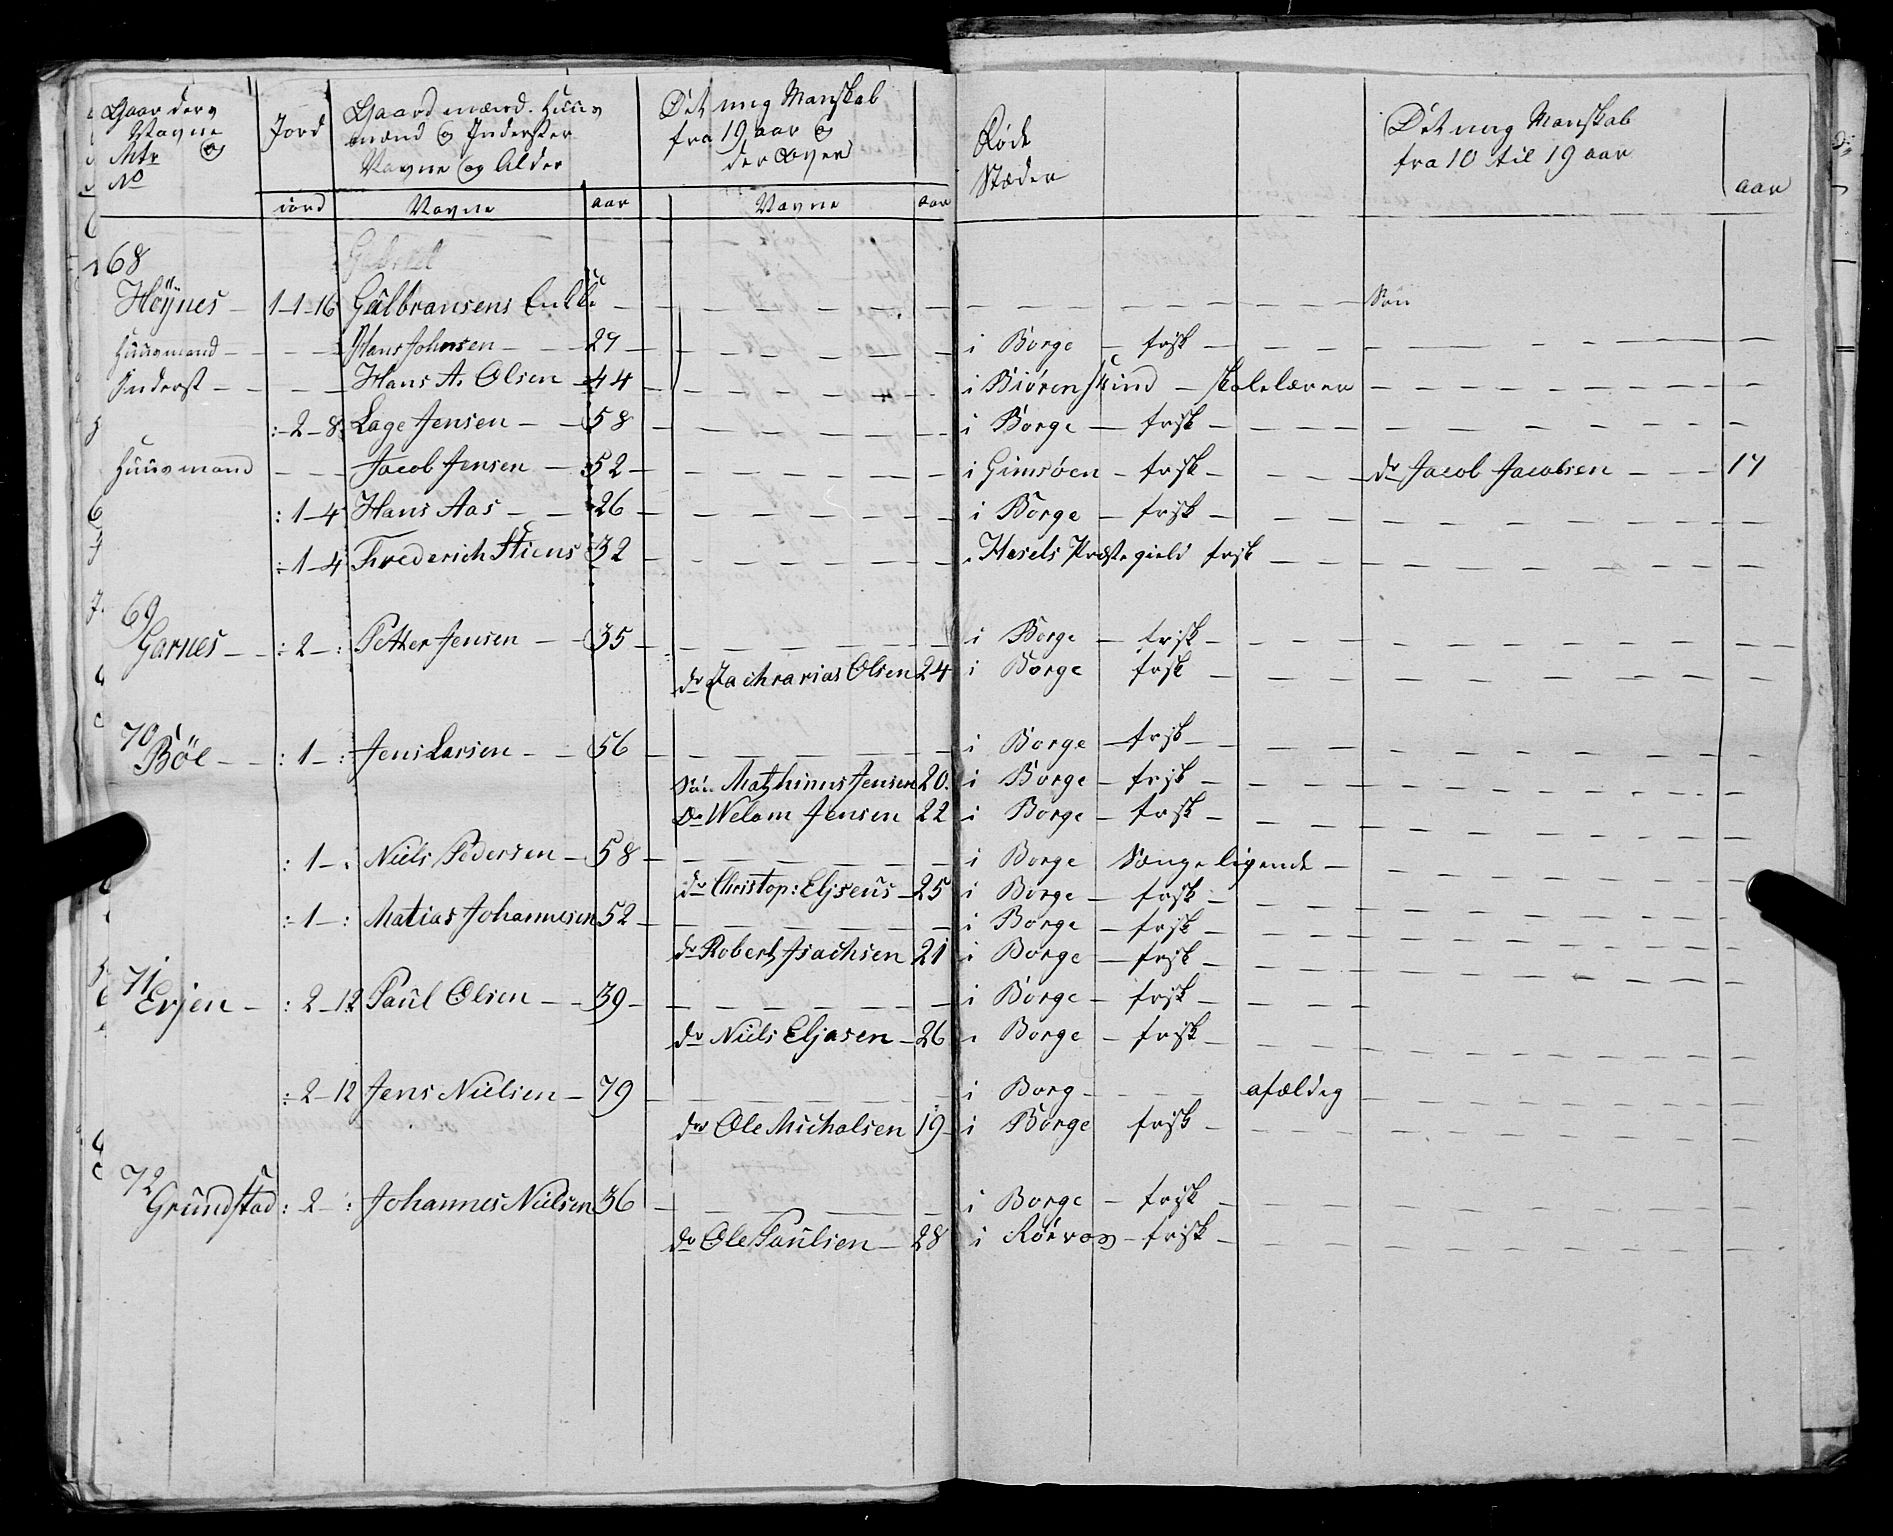 Gaarders Navne og Mtr No
Jord
Gaardmænd. Huusmænd og Inderster Navne og Alder
Det ung Manskab fra 19 aar og derover
Føde Stæder
Det ung Manskab fra 10 til 19 aar
aar
jord Navne aar Navne aar
68
Gabriel
Höÿnes - 1-1-16 Gulbransens Enkke - Søn
Huusmand - Hans Johnsen - 29 - i Borge - frisk -
Inderst - Hans A. Olsen - 44 - i Biørenskind - skolelærer
:-2-8 Lage Jensen - 58 - i Borge - frisk -
Huusmand - Jacob Jensen - 52 - i Gimsøen - frisk - do Jacob Jacobsen - 17
:1-4 Hans Aas - 26 - i Borge - frisk -
:1-4 Frederich Stiens 32 - Hosels Præstegield frisk
69
Garnes - :2-: Petter Jensen - 35 - i Borge - frisk -
do Zachrarias Olsen 24 i Borge frisk -
70
Böl - :1-: Jens Larsen - 56 - i Borge - frisk -
Søn Mathinus Jensen 20. i Borge - frisk -
do Welom Jensen 22 i Borge - frisk -
:1-: Niels Pedersen - 58 - i Borge Sængeligende -
do Christop: Eljseus - 25 i Borge - frisk -
:1-: Matias Johannesen 52 - i Borge - frisk -
do Robert Isachsen 21 i Borge - frisk -
71
Evjen - :2-12 Paul Olsen - 39 - i Borge - frisk -
do Niels Eljasen - 26 i Borge - frisk -
:2-12 Jens Nielsen - 79 - i Borg - afældig
do Ole Micholsen 19 - i Borge frisk -
72
Grundstad :2-: Johannes Nielsen 36 - i Borge - frisk -
do Ole Paulsen - 28 i - frisk -